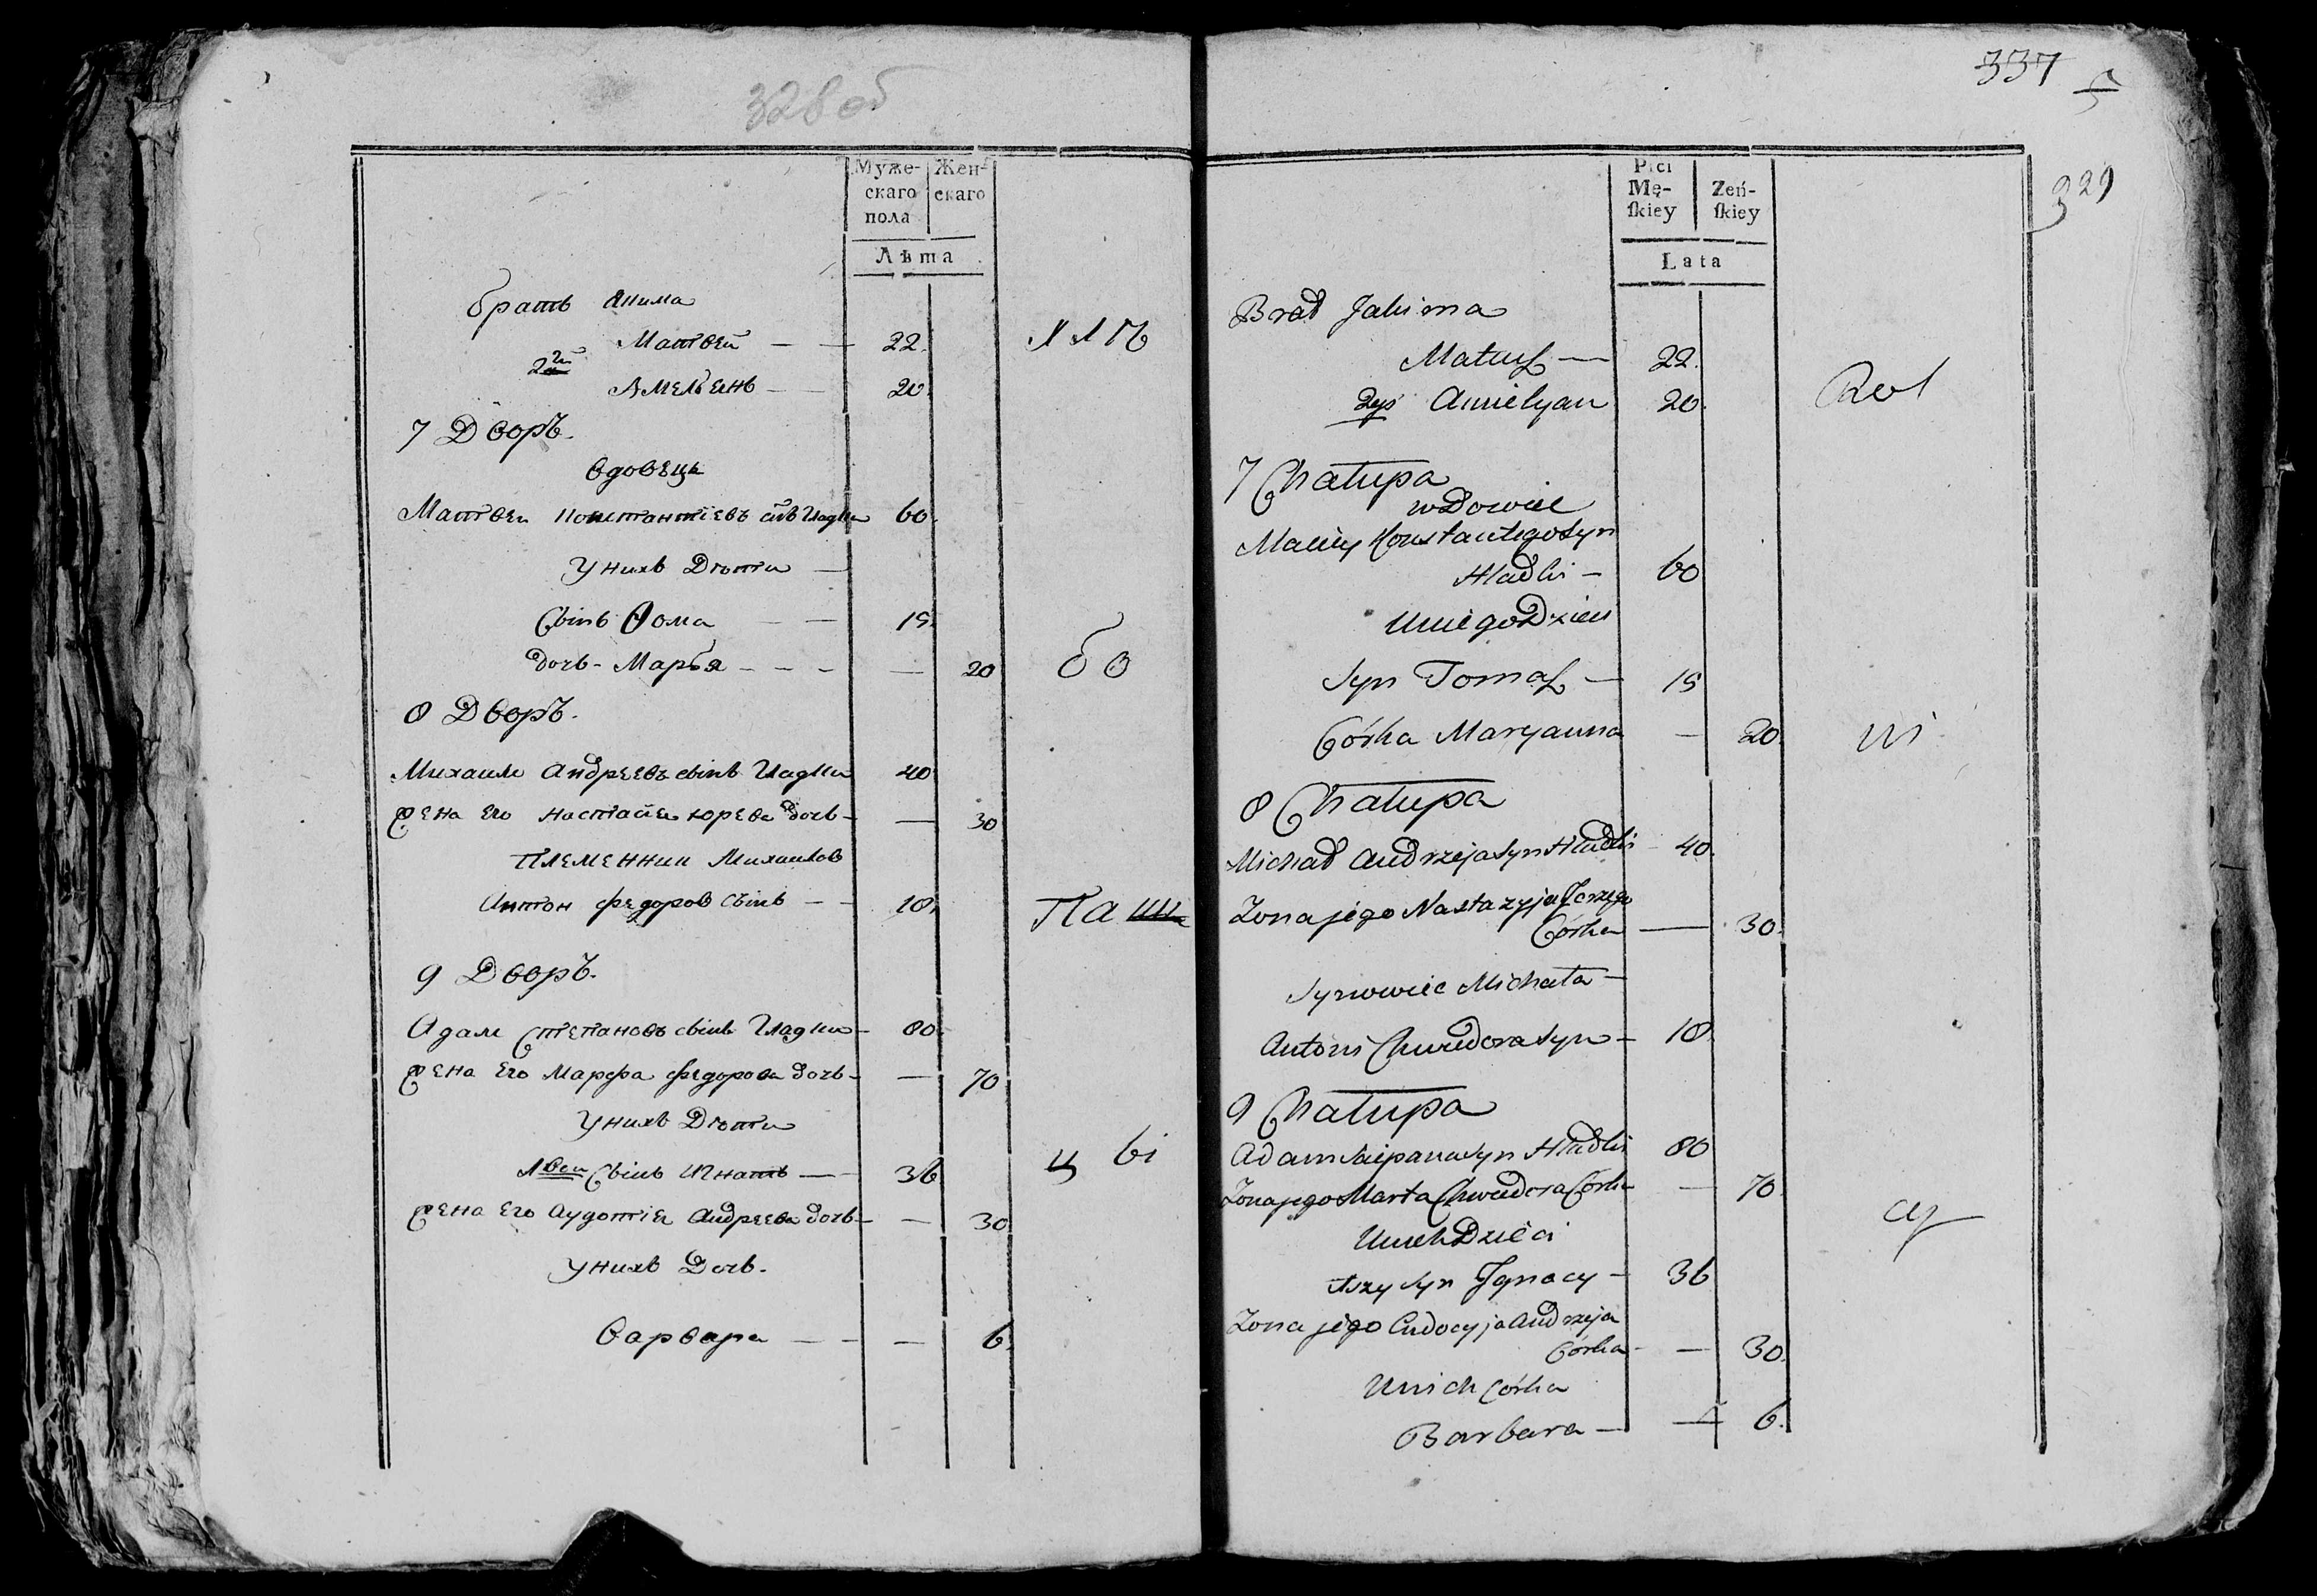 328 об
Муже-
скаго
пола
Жен-
скаго
Лѣта
братъ Акима
Матвей — — 22.
2й Амельянъ — 20.
7 Дворъ.
вдовецъ
Матвеи Константіевъ снъ Гладки 60.
У нихъ Дѣти —
Сынъ Ѳома — — 15.
дочь - Марья - - - — 20
8 Дворъ.
Михаилъ Андреевъ сынъ Гладки 40
Жена Его Настасия юрева дочь - — 30
Племенник Михаилов
Антон Федоров Сынъ — — 18.
9 Дворъ.
Адам Степановъ сынъ Гладки - 80.
Жена Его Марфа Федорова дочь - — 70
У нихъ Дѣти
1веи Сынъ Игнатъ — — 36
Жена Его Аудотія Андреева дочь - — 30
У нихъ Дочь.
Варвара — — — 6.
бо
Паш
ц ы
337
329
Płci
Mę-
ſkiey
Zeń-
ſkiey
Lata
Brat Jakima
Matusz — 22.
2gi Amielyan 20.
Rol
7 Chałupa
wDowiec
Maciey Konstantego syn
Hladki — 60
U niego Dzieci
Syn Tomasz — 15
Córka Maryanna — 20.
ni
8 Chałupa
Michał Andrzeja syn Hladki - 40.
Zona jego Nastazyja Jerzego
Córka — 30.
Synowiec Michała —
Antoni Chwedora syn - 18.
9 Chałupa
Adam Sciepana syn Hladki 80
Zona jego Marta Chwedora Córka — 70.
cy
U nich Dzieci
1szy syn Jgnacy - 36
Zona jego Eudocyja Andrzeja
Córka - — 30.
U nich córka
Barbara — — 6.